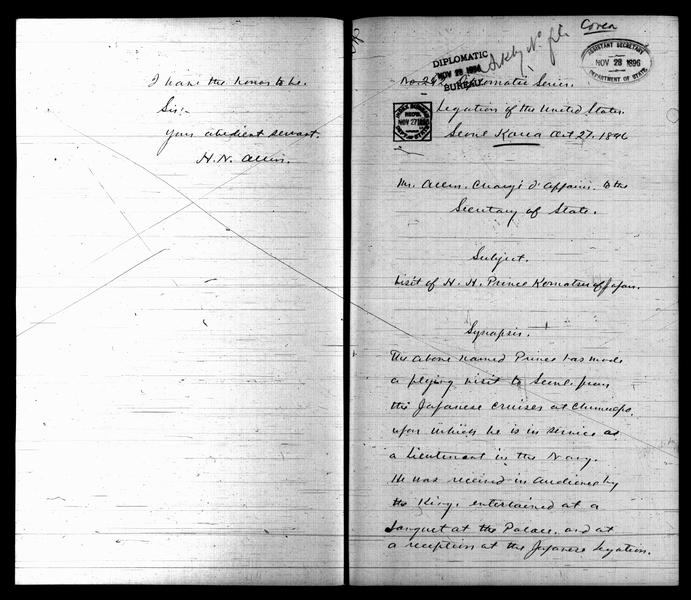 I have the honor to be.
Sir:-
Your obedient servant,
H. N. Allen.
Corea
ASSISTANT SECRETARY
NOV 28 1896
DEPARTMENT OF STATE
DIPLOMATIC
NOV 28 1896
BUREAU
No. Diplomatic Series.
NOV 27 1896
Legation of the United States.
Seoul Korea Oct 27. 1896
Mr. Allen. Chargé d'Affaires. to the
Secretary of State.
Subject.
Visit of H. H. Prince Komatsu of Japan.
Synopsis.
The above named Prince has made
a flying visit to Seoul, from
the Japanese cruiser at Chemulpo,
upon which he is in service as
a Lieutenant in the Navy.
He was received in Audience by
the King, entertained at a
banquet at the Palace. and at
a reception at the Japanese Legation.